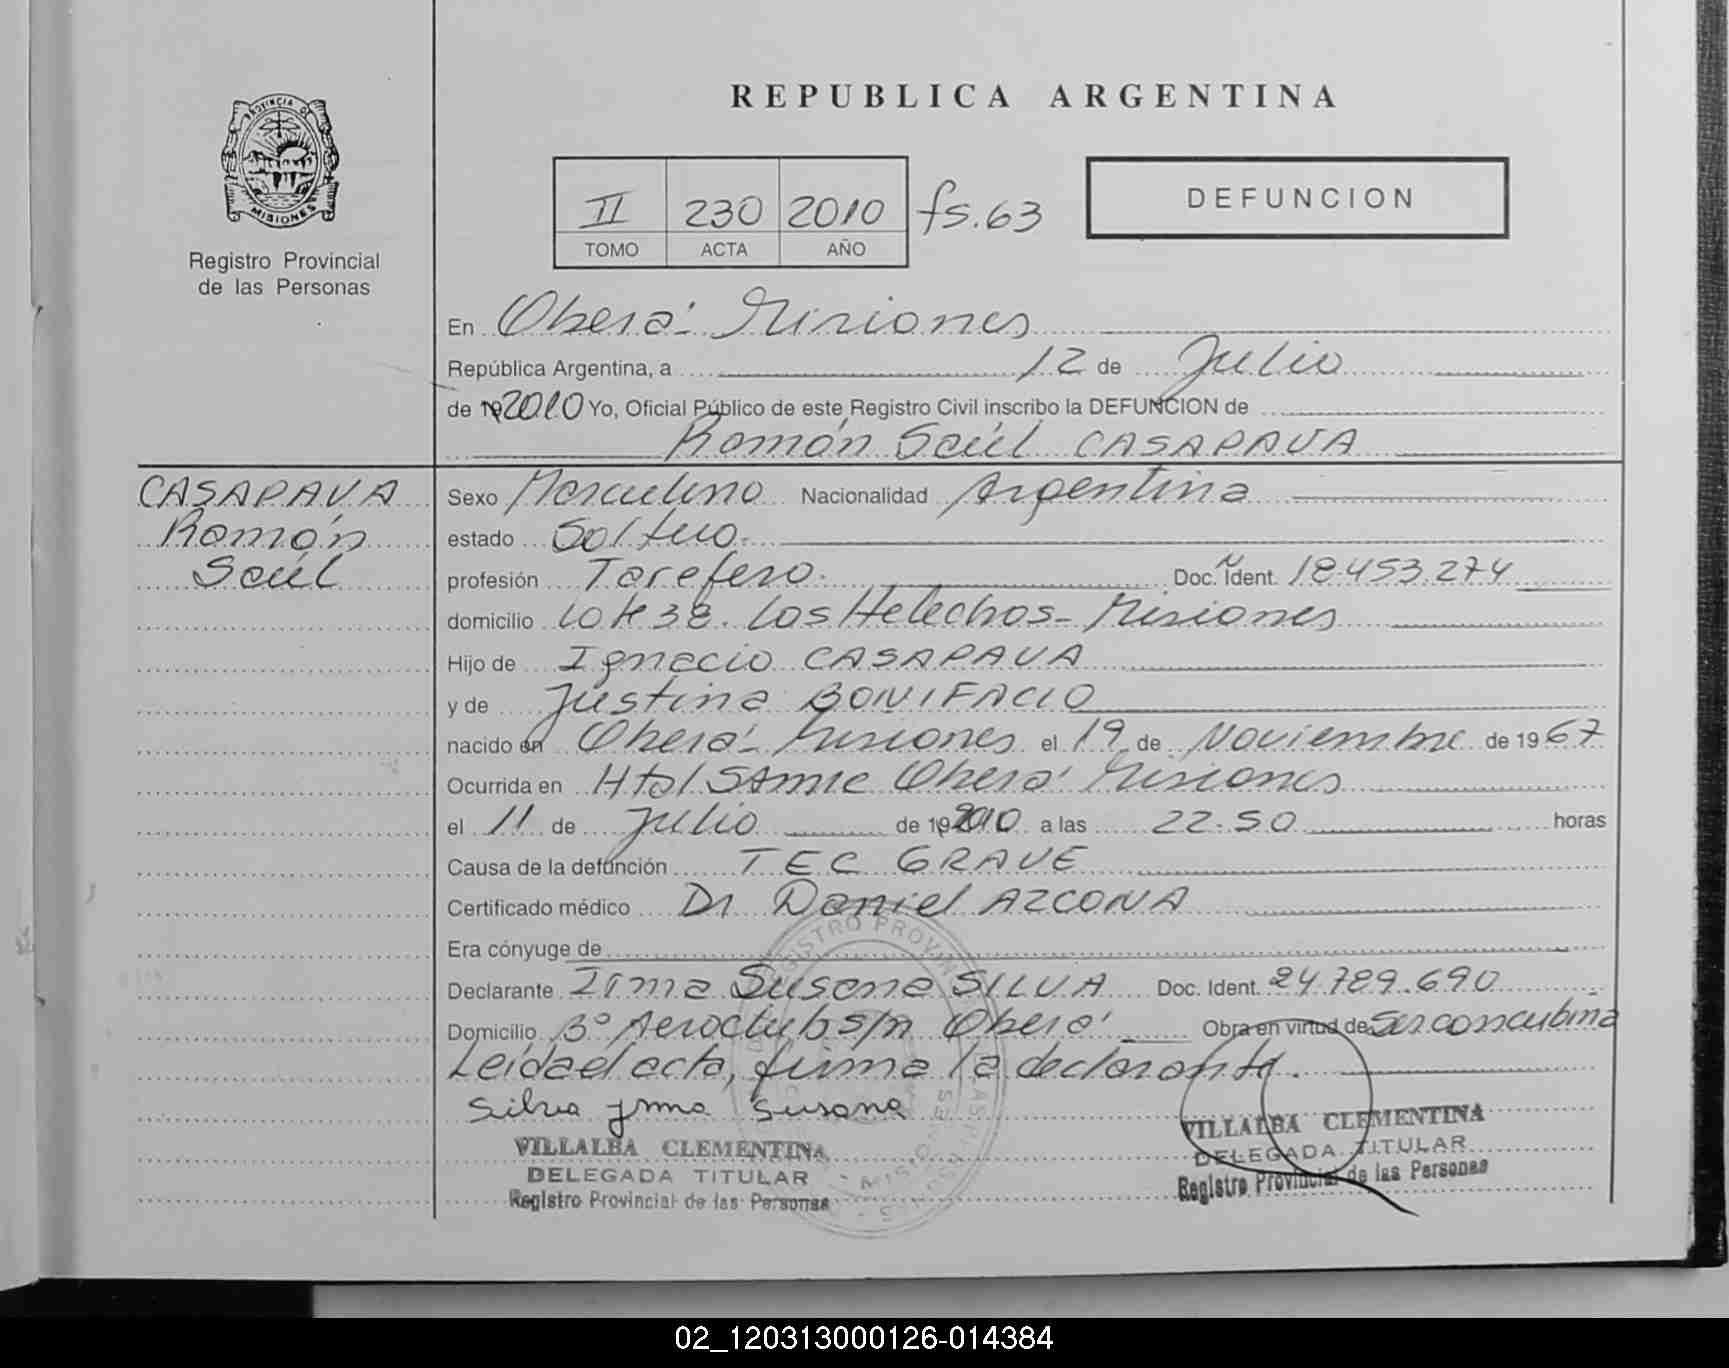 PROVINCIA DE
MISIONES
Registro Provincial
de las Personas
REPUBLICA ARGENTINA
II 230 2010 fs.63
TOMO ACTA AÑO
DEFUNCION
En Oberá - Misiones
República Argentina, a 12 de Julio
de 19 2010 Yo, Oficial Público de este Registro Civil inscribo la DEFUNCION de
Román Saúl CASAPAVA
CASAPAVA
Román
Saúl
Sexo Masculino Nacionalidad Argentina
estado Soltero.
profesión Tarefero. Doc. Ident. Nº 18.453.274
domicilio Lote 38. Los Helechos - Misiones
Hijo de Ignacio CASAPAVA
y de Justina BONIFACIO
nacido en Oberá - Misiones el 19 de Noviembre de 1967
Ocurrida en Htal SAMIC Oberá Misiones
el 11 de Julio de 19 2010 a las 22.50 horas
Causa de la defunción TEC GRAVE
Certificado médico Dr Daniel AZCONA
Era cónyuge de
Declarante Irma Susana SILVA Doc. Ident. 24.789.690
Domicilio Bº Aeroclub s/n Oberá Obra en virtud de Ser concubina
Leida el acta, firma la declarante.
Silva Irma Susana
VILLALBA CLEMENTINA
DELEGADA TITULAR
Registro Provincial de las Personas
VILLALBA CLEMENTINA
DELEGADA TITULAR
Registro Provincial de las Personas
02_120313000126-014384